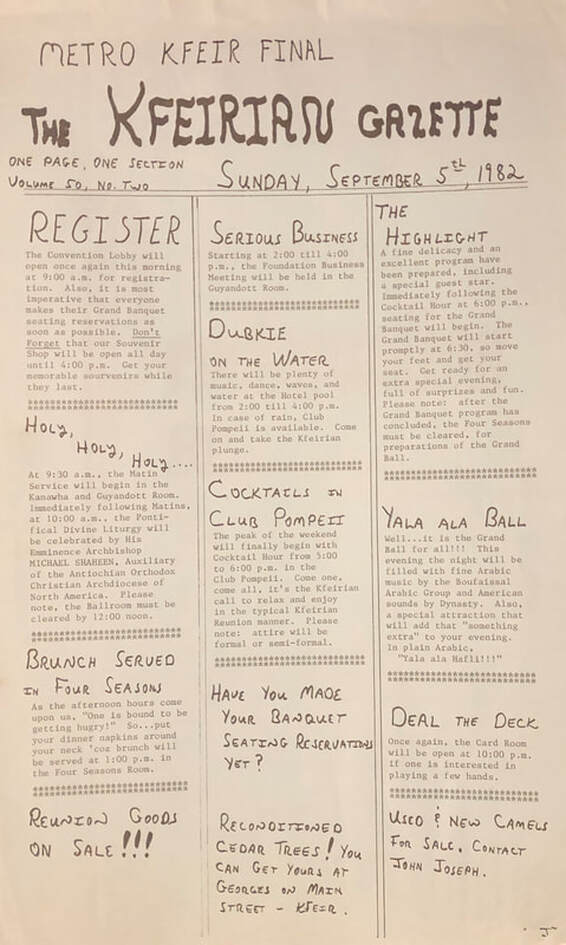 METRO KFEIR FINAL
THE KFEIRIAN GAZETTE
ONE PAGE, ONE SECTION
VOLUME 50, NO. TWO
SUNDAY, SEPTEMBER 5th, 1982
REGISTER
The Convention Lobby will
open once again this morning
at 9:00 a.m. for registra-
tion. Also, it is most
imperative that everyone
makes their Grand Banquet
seating reservations as
soon as possible. Don't
Forget that our Souvenir
Shop will be open all day
until 4:00 p.m. Get your
memorable sourvenirs while
they last.
HOLY,
HOLY,
HOLY....
At 9:30 a.m., the Matin
Service will begin in the
Kanawha and Guyandott Room.
Immediately following Matins,
at 10:00 a.m., the Ponti-
fical Divine Liturgy will
be celebrated by His
Eminence Archbishop
MICHAEL SHAHEEN, Auxiliary
of the Antiochian Orthodox
Christian Archdiocese of
North America. Please
note, the Ballroom must be
cleared by 12:00 noon.
BRUNCH SERVED
IN FOUR SEASONS
As the afternoon hours come
upon us, "One is bound to be
getting hugry!" So...put
your dinner napkins around
your neck 'coz brunch will
be served at 1:00 p.m. in
the Four Seasons Room.
REUNION GOODS
ON SALE!!!
SERIOUS BUSINESS
Starting at 2:00 till 4:00
p.m., the Foundation Business
Meeting will be held in the
Guyandott Room.
DUBKIE
ON THE WATER
There will be plenty of
music, dance, waves, and
water at the Hotel pool
from 2:00 till 4:00 p.m.
In case of rain, Club
Pompeii is available. Come
on and take the Kfeirian
plunge.
COCKTAILS IN
CLUB POMPEII
The peak of the weekend
will finally begin with
Cocktail Hour from 5:00
to 6:00 p.m. in the
Club Pompeii. Come one,
come all, it's the Kfeirian
call to relax and enjoy
in the typical Kfeirian
Reunion manner. Please
note: attire will be
formal or semi-formal.
HAVE YOU MADE
YOUR BANQUET
SEATING RESERVATIONS
YET?
RECONDITIONED
CEDAR TREES! YOU
CAN GET YOURS AT
GEORGES ON MAIN
STREET - KFEIR.
THE
HIGHLIGHT
A fine delicacy and an
excellent program have
been prepared, including
a special guest star.
Immediately following the
Cocktail Hour at 6:00 p.m.,
seating for the Grand
Banquet will begin. The
Grand Banquet will start
promptly at 6:30, so move
your feet and get your
seat. Get ready for an
extra special evening,
full of surprizes and fun.
Please note: after the
Grand Banquet program has
concluded, the Four Seasons
must be cleared, for
preparations of the Grand
Ball.
YALA ALA BALL
Well...it is the Grand
Ball for all!!! This
evening the night will be
filled with fine Arabic
music by the Boufaissal
Arabic Group and American
sounds by Dynasty. Also,
a special attraction that
will add that "something
extra" to your evening.
In plain Arabic,
"Yala ala Hafli!!!"
DEAL THE DECK
Once again, the Card Room
will be open at 10:00 p.m.
if one is interested in
playing a few hands.
USED & NEW CAMELS
FOR SALE, CONTACT
JOHN JOSEPH.